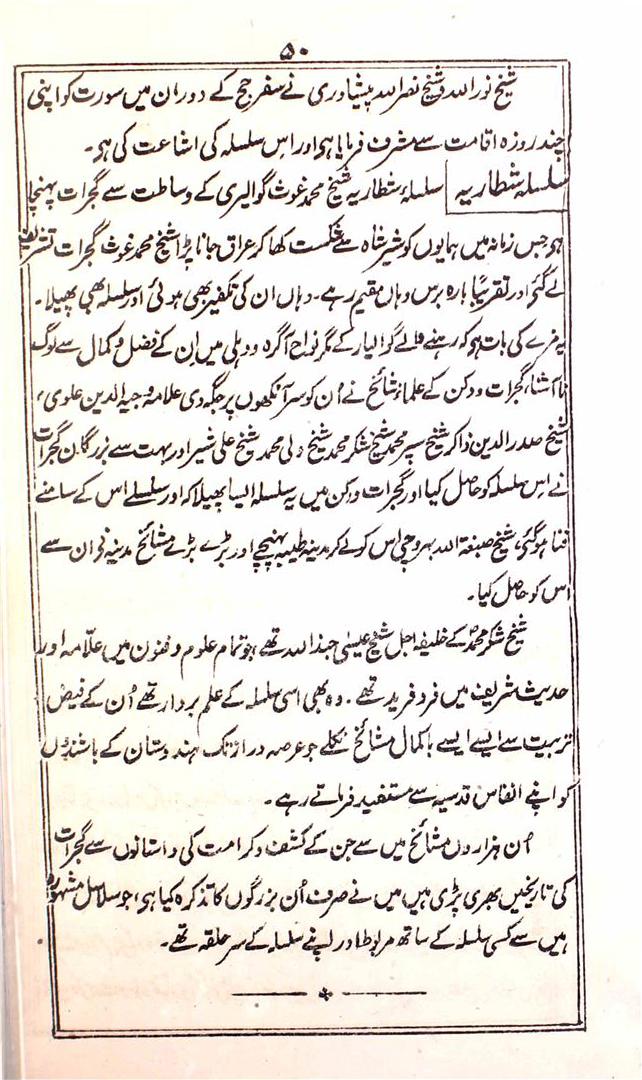 ۵۰
شیخ نور اللہ و شیخ نصر اللہ پیشاوری نے سفر حج کے دوران میں سورت کو اپنی
چند روزہ اقامت سے مشرف فرمایا ہی اور اس سلسلہ کی اشاعت کی ہو۔
سلسلہ شطاریہ سلسلہ شطاریہ شیخ محمد غوث گوالیری کے وساطت سے گجرات پہنچا
ہو جس زمانہ میں ہمایوں کو شیر شاہ سے شکست کھا کر عراق جانا پڑا شیخ محمد غوث گجرات تشریف
لے گئی اور تقریباً بارہ برس وہاں مقیم رہے۔ وہاں ان کی تکفیر بھی ہوئی اور سلسلہ بھی پھیلا۔
یہ مزے کی بات ہو کہ رہنے والے گوالیار کے مگر نواح آگرہ و دہلی میں ان کے فضل و کمال سے لوگ
نا آشنا، گجرات و دکن کے علماء مشائخ نے اُن کو سر آنکھوں پر جگہ دی علامہ وجیہ الدین علوی،
شیخ صدر الدین ذاکر شیخ سپر محمد شیخ شکر محمد شیخ ولی محمد شیخ علی شیر اور بہت سے بزرگان گجرات
نے اس سلسلہ کو حاصل کیا اور گجرات و دکن میں یہ سلسلہ ایسا پھیلا کہ اور سلسلے اس کے سامنے
فنا ہو گئی، شیخ صبغۃ اللہ بہروچی اس کو لے کر مدینہ طیبہ پہنچے اور بڑے بڑے مشائخ مدینہ نے ان سے
اس کو حاصل کیا۔
شیخ شکر محمد کے خلیفہ اجل شیخ عیسیٰ جند اللہ تھے جو تمام علوم و فنون میں علامہ اور
حدیث شریف میں فرد فرید تھے۔ وہ بھی اسی سلسلہ کے علم بردار تھے اُن کے فیض
تربیت سے ایسے ایسے با کمال مشائخ نکلے جو عرصہ دراز تک ہندوستان کے باشندوں
کو اپنے انفاس قدسیہ سے مستفید فرماتے رہے۔
اُن ہزاروں مشائخ میں سے جن کے کشف و کرامت کی داستانوں سے گجرات
کی تاریخیں بھری پڑی ہیں میں نے صرف اُن بزرگوں کا تذکرہ کیا ہی، جو سلاسل مشہورہ
میں سے کسی سلسلہ کے ساتھ مربوط اور اپنے سلسلہ کے سر حلقہ تھے۔